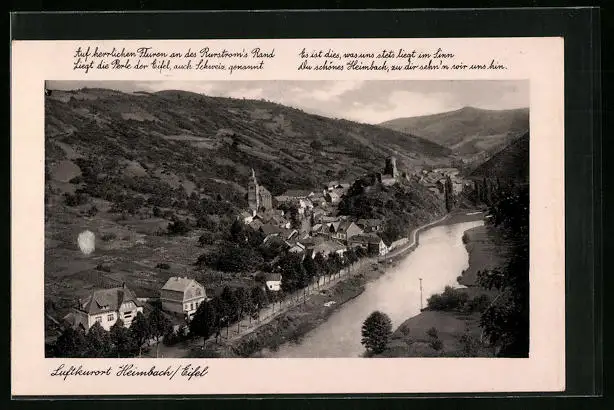 Auf herrlichen Fluren an des Rurstrom's Rand
Liegt die Perle der Eifel, auch Schweiz, genannt.
Es ist dies, was uns stets liegt im Sinn
Du schönes Heimbach, zu dir sehn'n wir uns hin.
Luftkurort Heimbach/Eifel